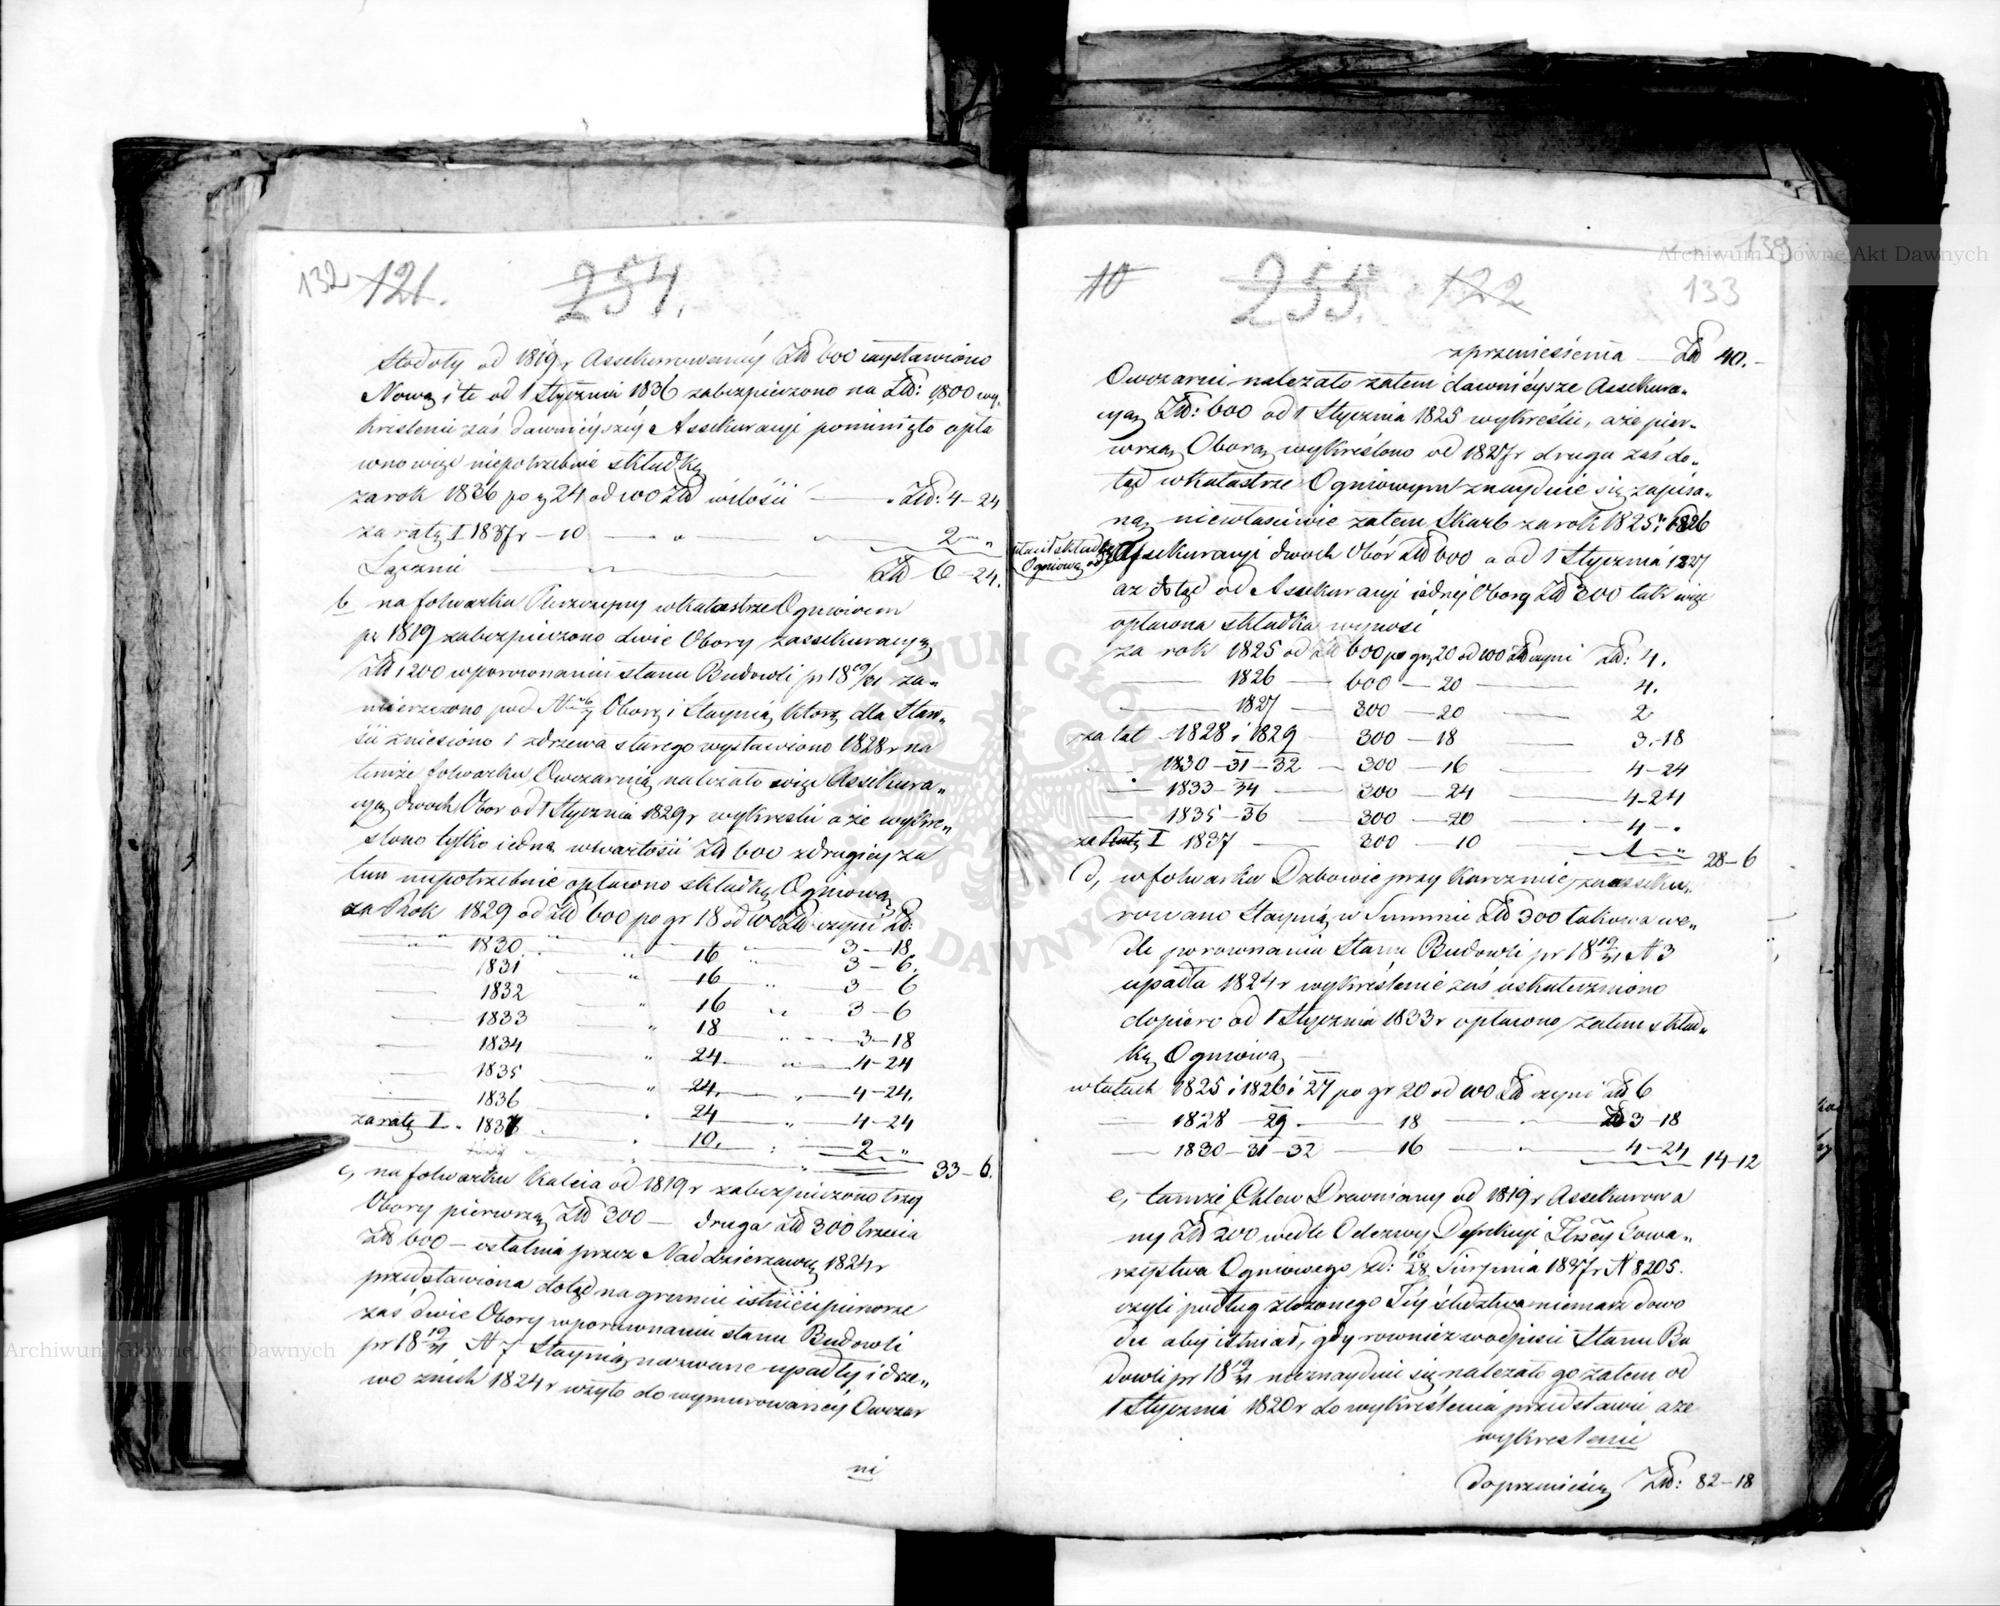 132 121. 254.
Stodoły od 1819 r Assekurowanéy Złd 600 wystawiono
Nową i tę od 1 Stycznia 1836 zabezpieczono na Złd: 1800 wy„
kreslenie zaś dawnieyszéy Assekuracyi pominięto opła
cono więc niepotrzebnie składkę
za rok 1836 po gr 24 od 100 Złd wilości — „ Złd: 4–24
za ratę I 1837 r – 10 — „ — „ 2 — „
Łącznie — Złd 6–24.
b na folwarku w katastrze Ogniowem
pr 1819 zabezpieczono dwie Obory zassekuracyą
Złd 1200 w porównaniu stanu Budowli pr 18 19/31 za„
mierzczono pod N 6/7 Oborę i Staynią, którą dla Staro„
ści zniesiono i z drzewa starego wystawiono 1828 r na
temże folwarku Owczarnią należało więc Assekura„
cyą dwóch Obor od 1 Stycznia 1829 r wykreslić a że wykre„
slono tylko iedną w wartości Złd 600 z drugiey za
tem niepotrzebnie opłacono składkę Ogniową
za Rok 1829 od Złd 600 po gr 18 od 100 Złd czyni Złd:
„ — „ 3–18
1830 „ 16 „ 3–6.
1831 „ 16 „ 3–6
1832 „ 16 „ 3–6
1833 „ 18 „ 3–18
1834 „ 24 „ 4–24
1835 „ 24 „ 4–24.
1836 „ 24 „ 4–24
za ratę I „ 1837 „ 10. „ 2 „
33–6.
c, na folwarku Kalcia od 1819 r zabezpieczono trzy
Obory pierwszą Złd 300 — druga Złd 300 trzecia
Złd 600 – ostatnia przez Naddzierzawcę 1824 r
przedstawiona dotąd na gruncie istnieie pierwsze
zaś dwie Obory w porównaniu stanu Budowli
pr 18 19/31 N 7 Staynią nazwane upadły i drze„
wo z nich 1824 r użyto do wymurowanéy Owczar
ni
10 255. 122 133
139
z przeniesienia — Złd 40.–
Owczarni należało zatem dawnieysze Assekura„
cyą Złd: 600 od 1 Stycznia 1825 wykreslić, a że pier„
wszą Oborą wykreślono od 1827 r druga zaś do„
tąd w katastrze Ogniowym znayduie się zapisa„
ną, niewłaściwie zatem Skarb za rok 1825 i 1826
płacił składkę Ogniową od
Assekuracyi dwoch Obór Złd 600 a od 1 Stycznia 1827
aż dotąd od Assekuracyi iednéy Obory Złd 300 tak więc
opłacona składka wynosi
za rok 1825 od Złd 600 po gr 20 od 100 Złd czyni Złd: 4.
— 1826 — 600 — 20 — 4.
— 1827 — 300 — 20 — 2
za lat 1828 i 1829 — 300 — 18 — 3.–18
— 1830–31–32 — 300 — 16 — 4–24
— 1833–34 — 300 — 24 — 4–24
— 1835–36 — 300 — 20 — 4 – „
za Ratę I 1837 — 300 — 10 — 1 – „
28–6
d, w folwarku Dzbowie przy Karczmie zaasseku„
rowano Staynią w Summie Złd 300 takowa we„
dle porównania Stanu Budowli pr 18 19/31 N 3
upadła 1824 r wykreślenie zaś uskuteczniono
dopiero od 1 Stycznia 1833 r opłacono zatem skład„
kę Ogniową —
w latach 1825 i 1826 i 27 po gr 20 od 100 Złd czyni Złd 6
— 1828 — 29. — 18 — „ — Złd 3–18
— 1830–31–32 — 16 — „ — 4–24
14–12
e, tamże Chlew Drewniany od 1819 r Assekurowa
ny Złd 200 wedle Odezwy Dyrekcyi Towa„
rzystwa Ogniowego zd: 16/28 Sierpnia 1837 r N 8205.
czyli podług złożonego Téy śledztwa niemasz dowo
du aby istniał, gdy również w odpisie Stanu Bu
dowli pr 18 19/31 nieznayduie się należało go zatem od
1 Stycznia 1820 r do wykreślenia przedstawić a że
wykreslenie
do przeniesienia Złd: 82–18
Archiwum Główne Akt Dawnych
Archiwum Główne Akt Dawnych
ARCHIWUM GŁÓWNE AKT DAWNYCH